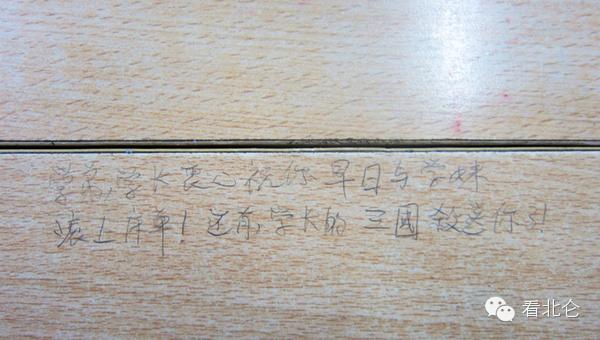 学弟,学长衷心祝你早日与学妹
滚上床单!还有,学长的三國殺送你了!
看北仑